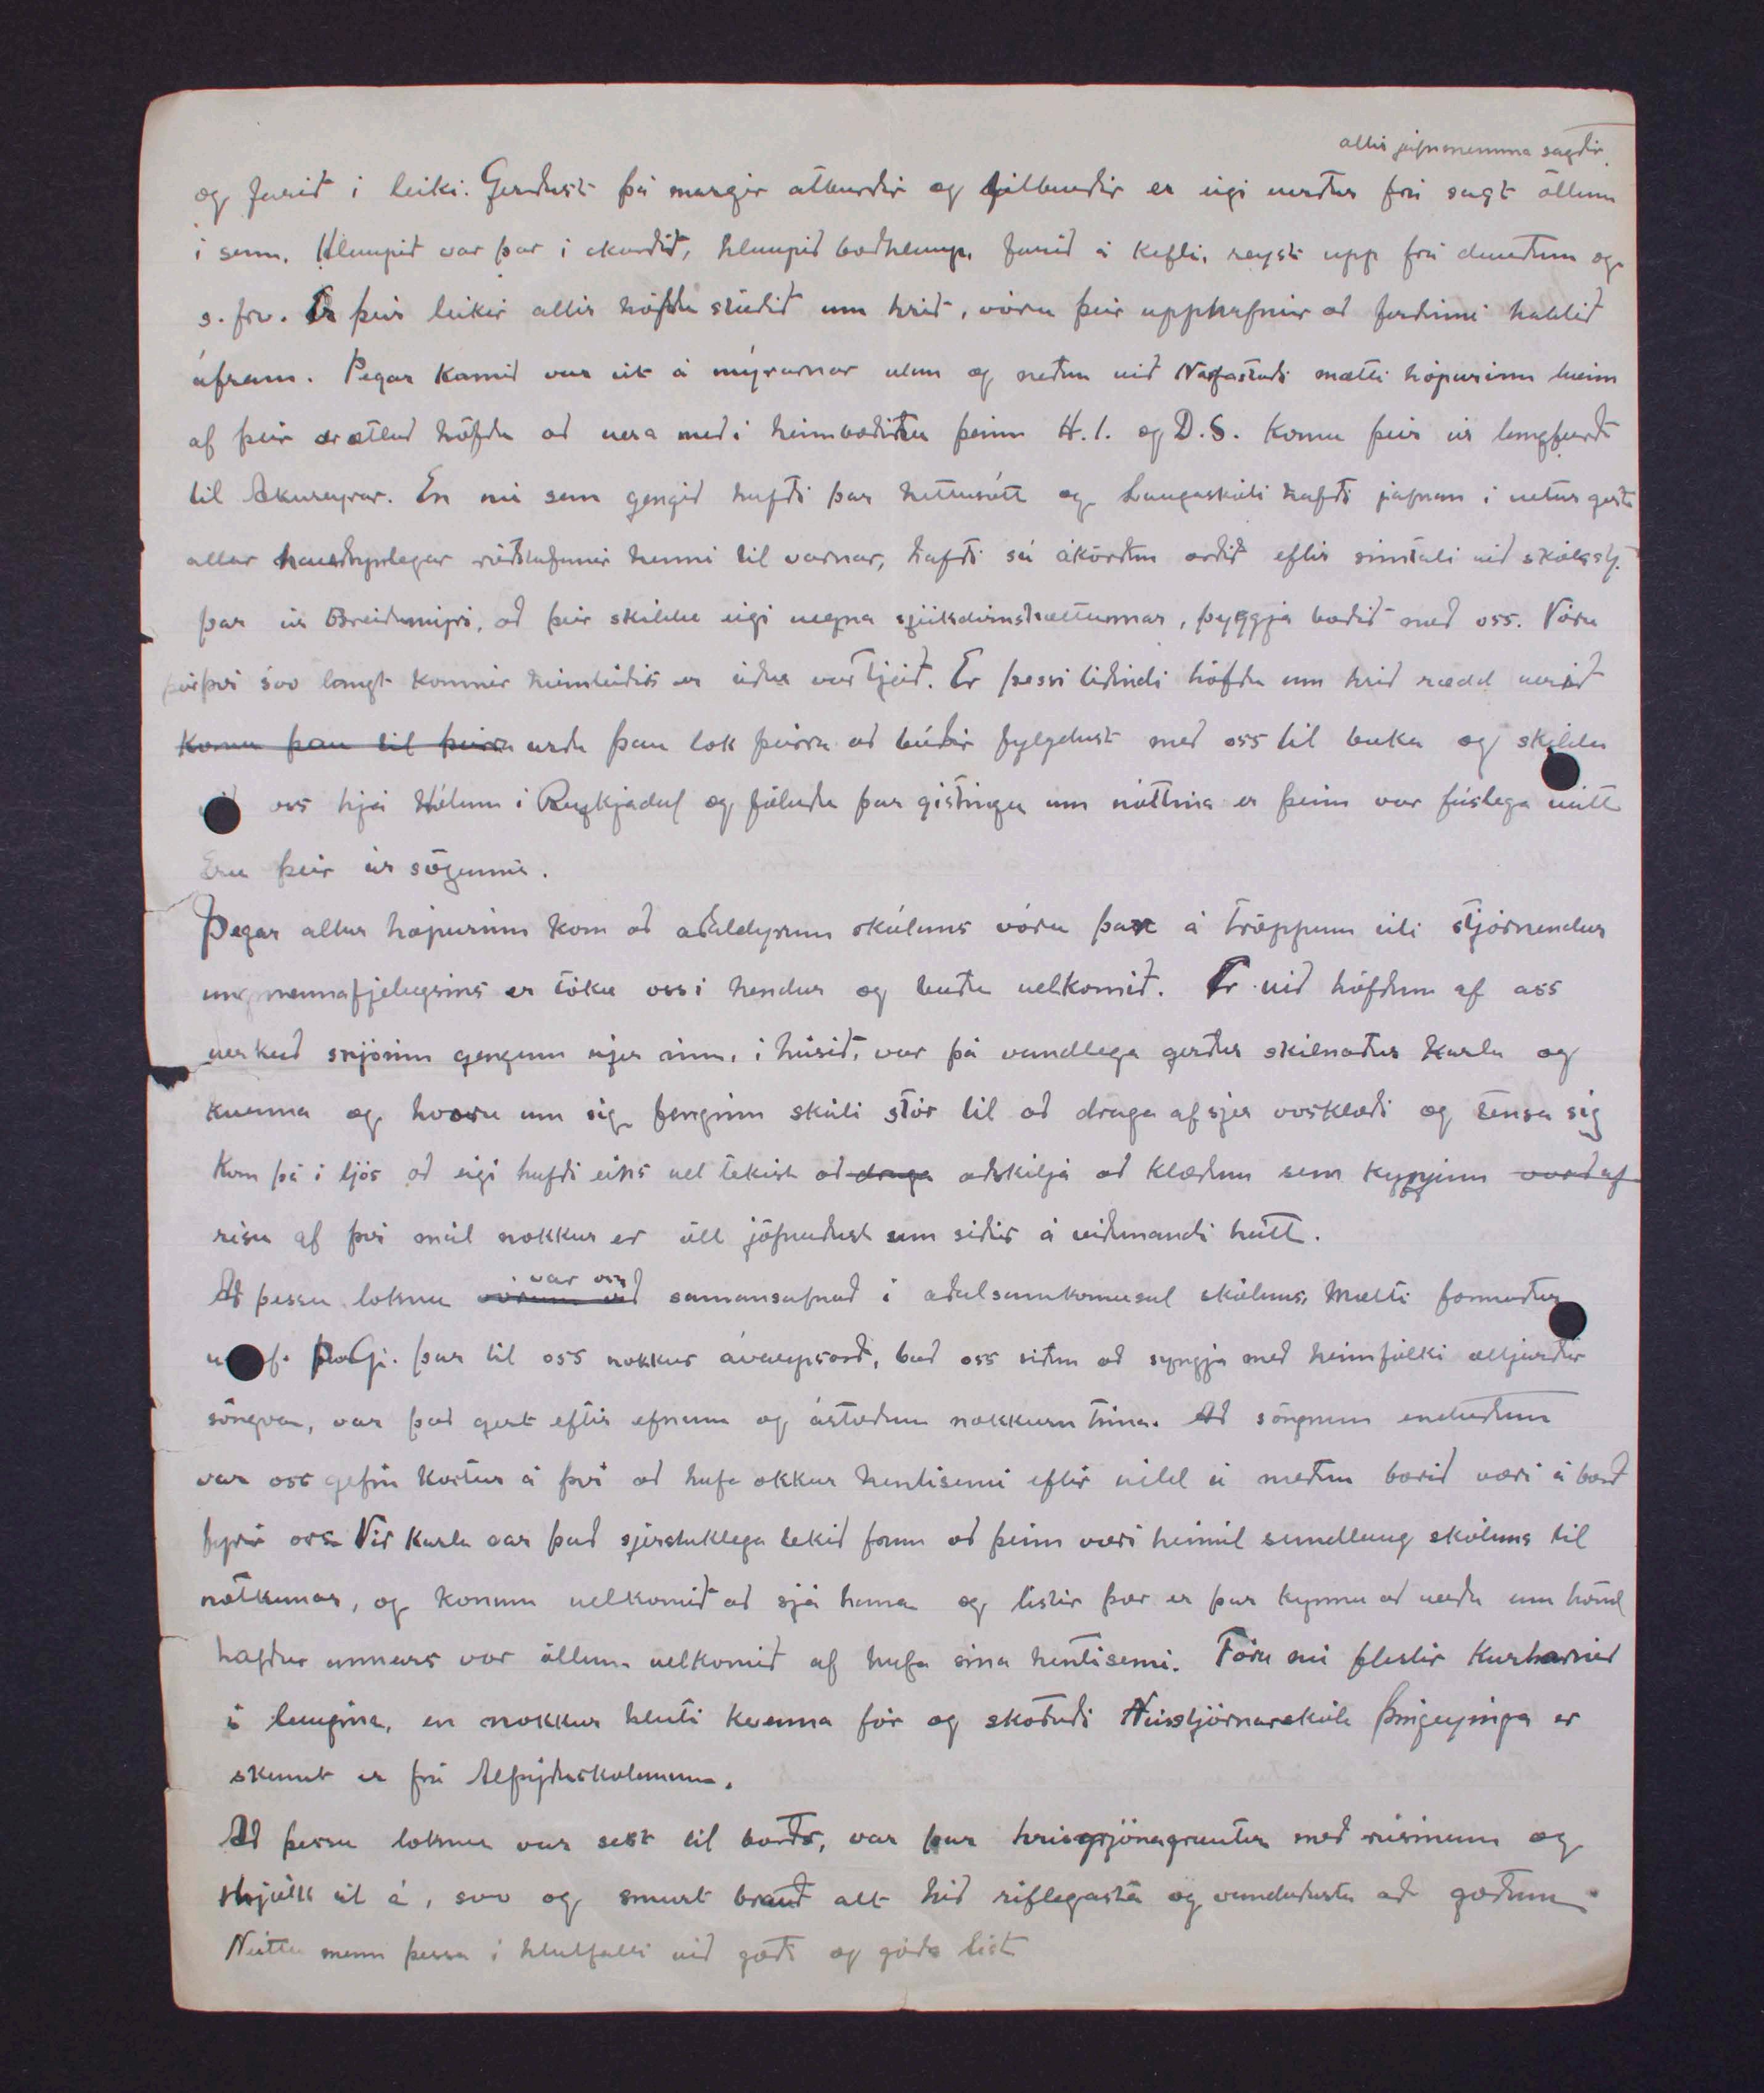 allir jafnmenna sagðir
og farið i leiki. Gerðust þá margir atburðir og tilburðir er eigi verður frá sagt öllum
i senn. Hlaupið var þar i skarðið, hlaupið boðhlaup, farið á kefli, reyst upp frá dauðum og
s. frv. Er þeir leikir allir höfðu staðið um hrið, vóru þeir upphafnir að ferðinni haldið
áfram. Þegar Komið var út á mýrarnar utan og neðan við Narfastaði mætti hópurinn tveim
af þeir er ætlað höfðu að vera með i heimboðinu þeim H. I. og D. S. Komu þeir úr langferð
til Akureyrar. En nú sem gengið hafði þar hettusótt og Laugaskóli hafði jafnan i vetur gert
allar hauðsynlegar ráðstafanir henni til varnar, hafði sú ákvörðun orðið eftir simtali við skólastj.
þar úr Breiðumýri, að þeir skildu eigi vegna sjúkdómshættunnar, þyggja boðið með oss. Vóru
þeir því svo langt komnir heimleiðis er iður var tjeð. Er þessi tiðindi höfðu um hrið rædd verið
Komu þau til þeirra urðu þau lok þeirra að báðir fylgdust með oss til baka og skildu
við oss hjá Hólum i Reykjadal og föluðu þar gistingu um nóttina er þeim var fúslega veitt
Eru þeir úr sögunni.
Þegar allur hópurinn kom að aðaldyrum skólans vóru þar á tröppum úti stjórnendur
ungmennafjelagsins er tóku oss i hendur og buðu velkomið. Er við höfðum af oss
verkað snjóinn gengum vjer inn i húsið, var þá vandlega gerður skilnaður Karla og
Kvenna og hvoru um sig fenginn skáli stór til að draga af sjer vosklæði og sensa sig
Kom þá i ljós að eigi hafði eins vel tekist að draga aðskilja að klæðum sem kynjum varð af
risu af því mál nokkur er öll jöfnuðust um siðir á viðunandi hátt.
Að þessu loknu vórum við var oss samansafnað i aðalsamkomusal skólans, Mælti formaður
u. f. Þ.G. þar til oss nokkur ávarpsorð, bað oss siðan að syngja með heimfólki ættjarðar
söngva, var það gert eftir efnum og ástæðum nokkurn tima. Að söngnum enduðum
var oss gefin kostur á því að hafa okkur hentisemi eftir vild á meðan borið væri á borð
fyrir oss. Við Karla var það sjerstaklega tekið fram að þeim væri heimil sundlaug skólans til
nótkunar, og konum velkomið að sjá hana og listir þær er þar kynnu að verða um hönd
hafðar annars var öllum velkomið af hafa sina hentisemi. Fóru nú flestir Karlarnir
i laugina, en nokkur hluti kvenna fór og skoðaði Hússtjórnarskóla Þingeyinga er
skamt er frá Alþýðuskólanum.
Að þessu loknu var sest til borðs, var þar hrisgrjónagrautur með rúsinum og
Mjólk út á, svo og smurt brauð alt hið riflegasta og vandaðasta að gæðum
Neittu menn þessa i hlutfalli við gæði og góða list